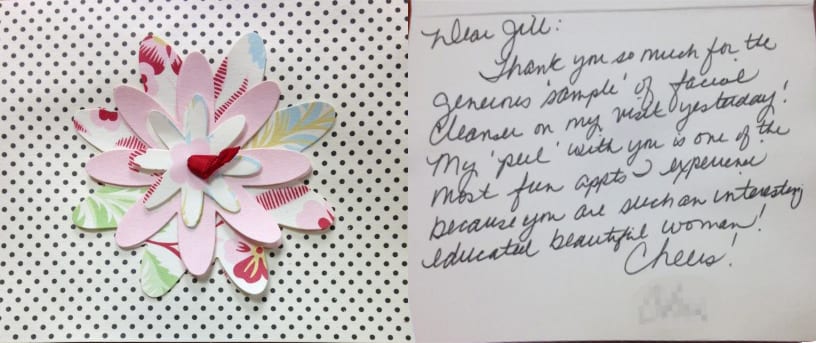 Dear Jill:
Thank you so much for the
generous 'sample' of facial
cleanser on my visit yesterday!
My 'peel' with you is one of the
most fun appts I experience
because you are such an interesting
educated beautiful woman!
Cheers!